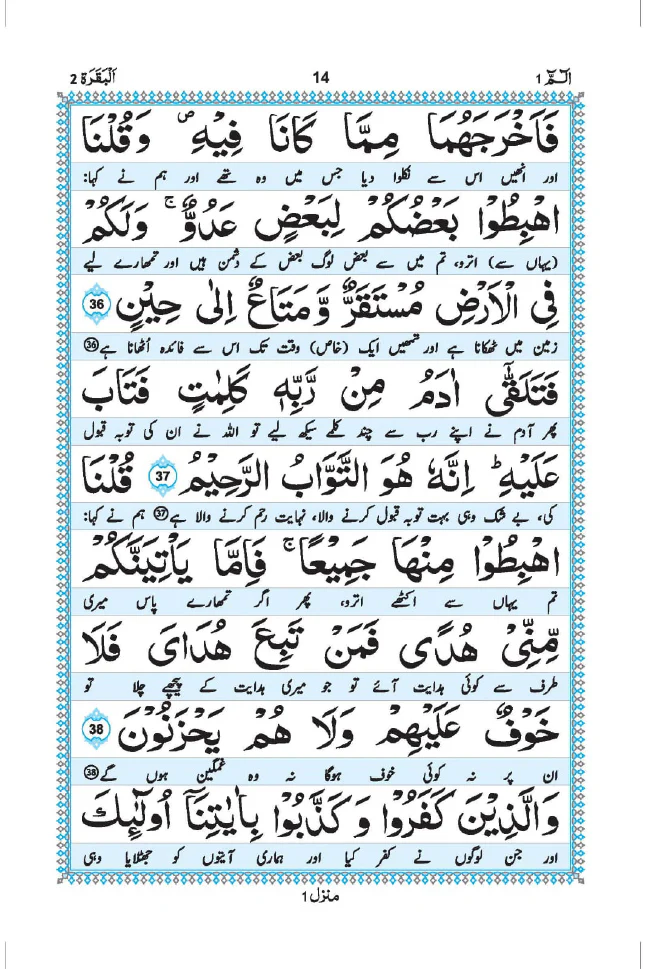 الٓمّٓ 1 14 اَلْبَقَرَة 2
فَاَخْرَجَهُمَا مِمَّا كَانَا فِيْهِ ۪ وَقُلْنَا
اور انھیں اس سے نکلوا دیا جس میں وہ تھے اور ہم نے کہا:
اهْبِطُوْا بَعْضُكُمْ لِبَعْضٍ عَدُوٌّ ۚ وَلَكُمْ
(یہاں سے) اترو، تم میں سے بعض لوگ بعض کے دشمن ہیں اور تمھارے لیے
فِي الْاَرْضِ مُسْتَقَرٌّ وَّمَتَاعٌ اِلٰى حِيْنٍ 36
زمین میں ٹھکانا ہے اور تمھیں ایک (خاص) وقت تک اس سے فائدہ اُٹھانا ہے 36
فَتَلَقّٰۤى اٰدَمُ مِنْ رَّبِّهٖ كَلِمٰتٍ فَتَابَ
پھر آدم نے اپنے رب سے چند کلمے سیکھ لیے تو اللہ نے ان کی توبہ قبول
عَلَيْهِ ؕ اِنَّهٗ هُوَ التَّوَّابُ الرَّحِيْمُ 37 قُلْنَا
کی، بے شک وہی بہت توبہ قبول کرنے والا، نہایت رحم کرنے والا ہے 37 ہم نے کہا:
اهْبِطُوْا مِنْهَا جَمِيْعًا ۚ فَاِمَّا يَاْتِيَنَّكُمْ
تم یہاں سے اکٹھے اترو، پھر اگر تمھارے پاس میری
مِّنِّيْ هُدًى فَمَنْ تَبِعَ هُدَايَ فَلَا
طرف سے کوئی ہدایت آئے تو جو میری ہدایت کے پیچھے چلا تو
خَوْفٌ عَلَيْهِمْ وَلَا هُمْ يَحْزَنُوْنَ 38
ان پر نہ کوئی خوف ہوگا نہ وہ غمگین ہوں گے 38
وَالَّذِيْنَ كَفَرُوْا وَكَذَّبُوْا بِاٰيٰتِنَاۤ اُولٰٓئِكَ
اور جن لوگوں نے کفر کیا اور ہماری آیتوں کو جھٹلایا وہی
منزل 1